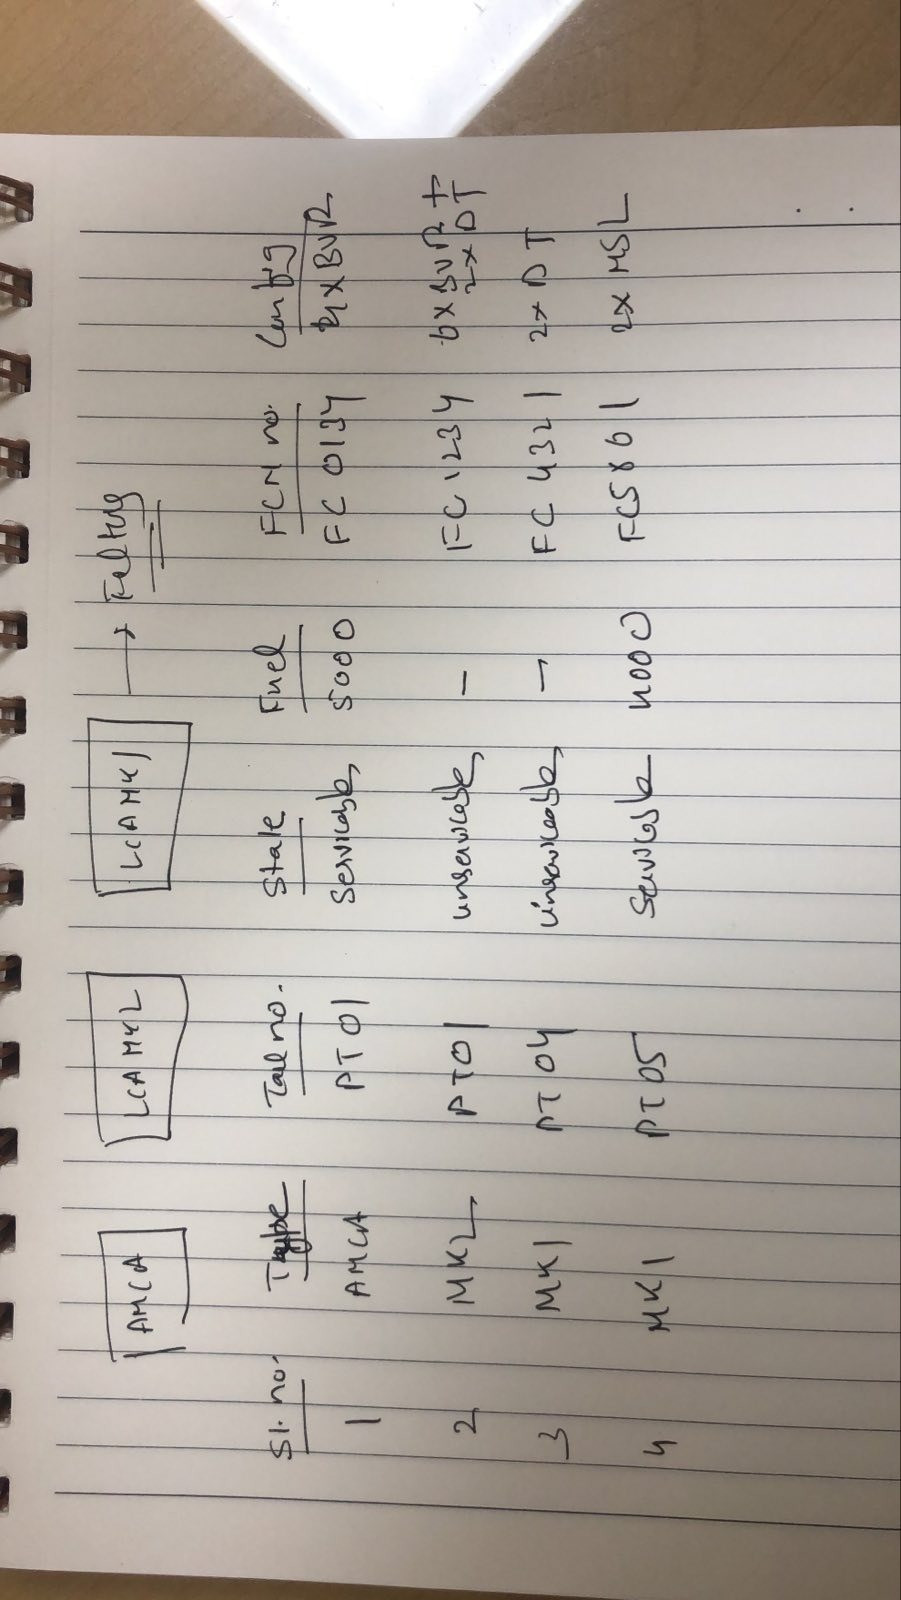 AMCA LCA MK2 LCA MK1 → Filters
Sl. no. Type Tail no. State Fuel FCN no. Config
1 AMCA PT01 Serviceable 5000 FC 0134 4xBVR
2 MK2 PT01 unserviceable - FC 1234 6xBVR +
2x DT
3 MK1 PT04 unserviceable - FC 4321 2x DT
4 MK1 PT05 Serviceable 4000 2x MSL